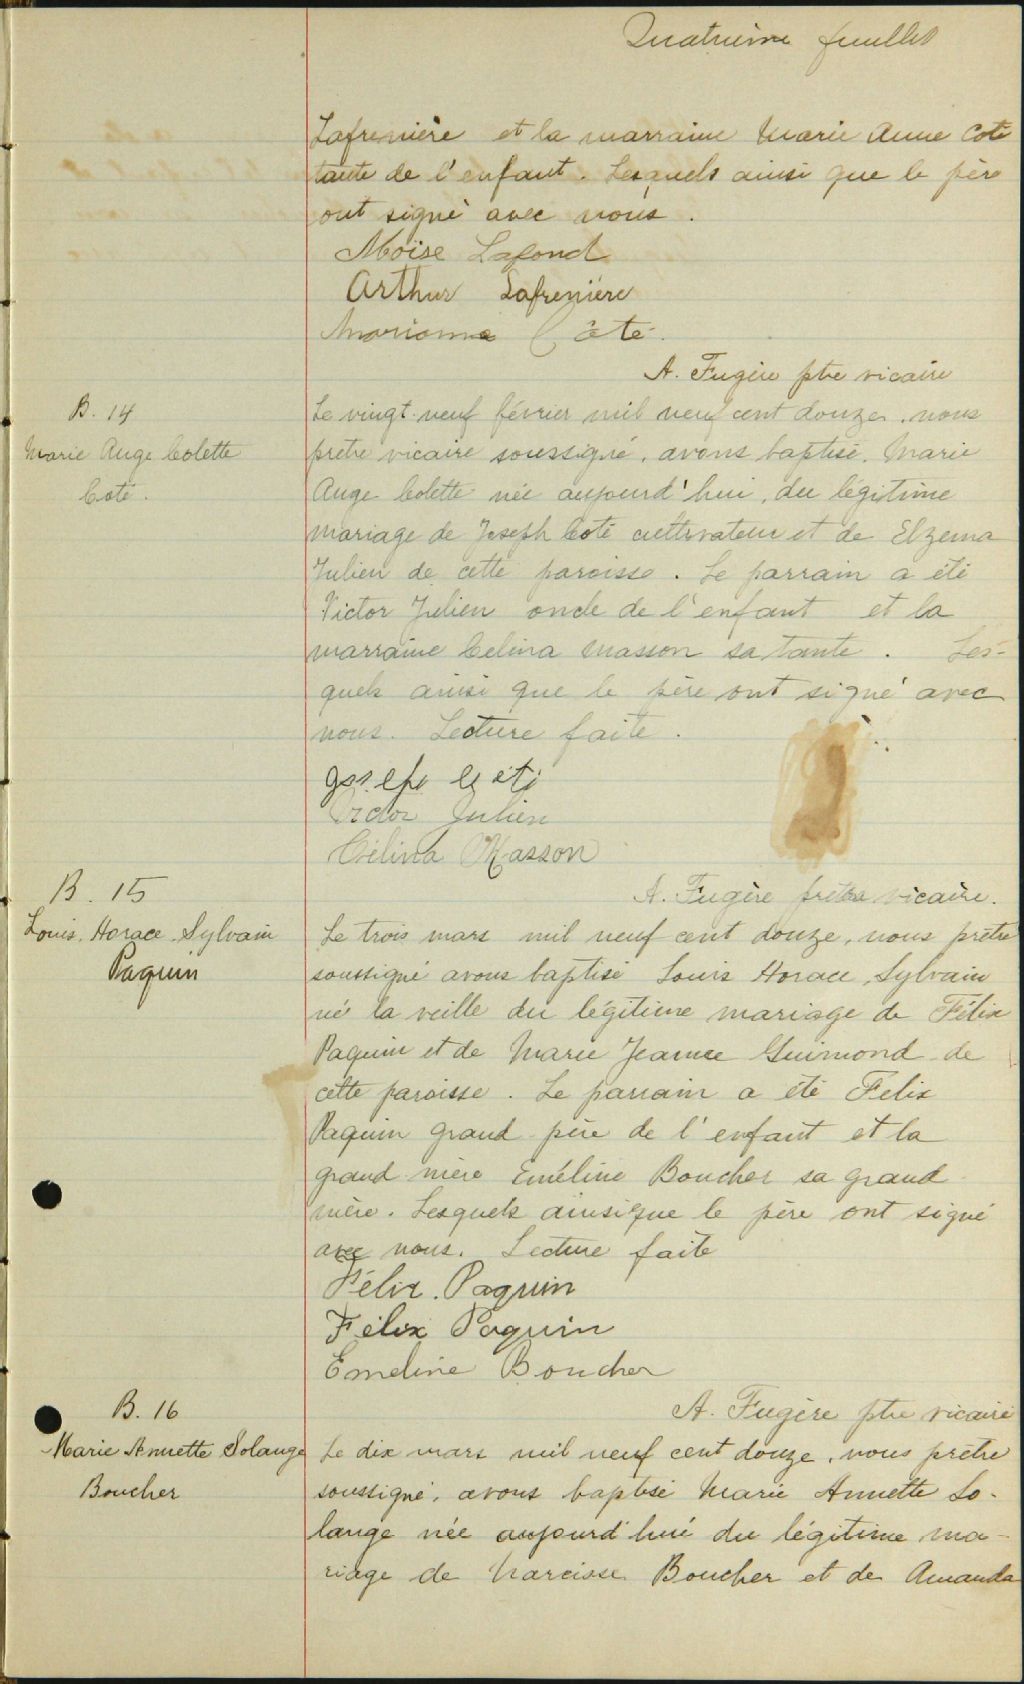 Quatrième feuillet
Lafrenière et la marraine Marie Anne Coté
tante de l'enfant. Lesquels ainsi que le père
ont signé avec nous.
Moïse Lafond
Arthur Lafrenière
Marianna Côté.
A. Fugère ptre vicaire
B. 14
Marie Ange Colette
Coté.
Le vingt-neuf février mil neuf cent douze, nous
prêtre vicaire soussigné, avons baptisé, Marie
Ange Colette née aujourd'hui, du légitime
mariage de Joseph Coté cultivateur et de Elzema
Julien de cette paroisse. Le parrain a été
Victor Julien oncle de l'enfant et la
marraine Celina Masson sa tante. Les-
quels ainsi que le père ont signé avec
nous. Lecture faite.
Josep Coté
Victor Julien
Célina Masson
A. Fugère prêtre vicaire.
B. 15
Louis, Horace, Sylvain
Paquin
Le trois mars mil neuf cent douze, nous prêtre
soussigné avons baptisé Louis Horace, Sylvain
né la veille du légitime mariage de Félix
Paquin et de Marie Jeanne Guimond de
cette paroisse. Le parrain a été Felix
Paquin grand-père de l'enfant et la
grand-mère Eméline Boucher sa grand
mère. Lesquels ainsi que le père ont signé
avec nous. Lecture faite
Félix. Paquin
Félix Paquin
Emeline Boucher
A. Fugère ptre vicaire
B. 16
Marie Annette Solange
Boucher
Le dix mars mil neuf cent douze, nous prêtre
soussigné, avons baptisé Marie Annette So-
lange née aujourd'hui du légitime ma-
riage de Narcisse Boucher et de Amanda